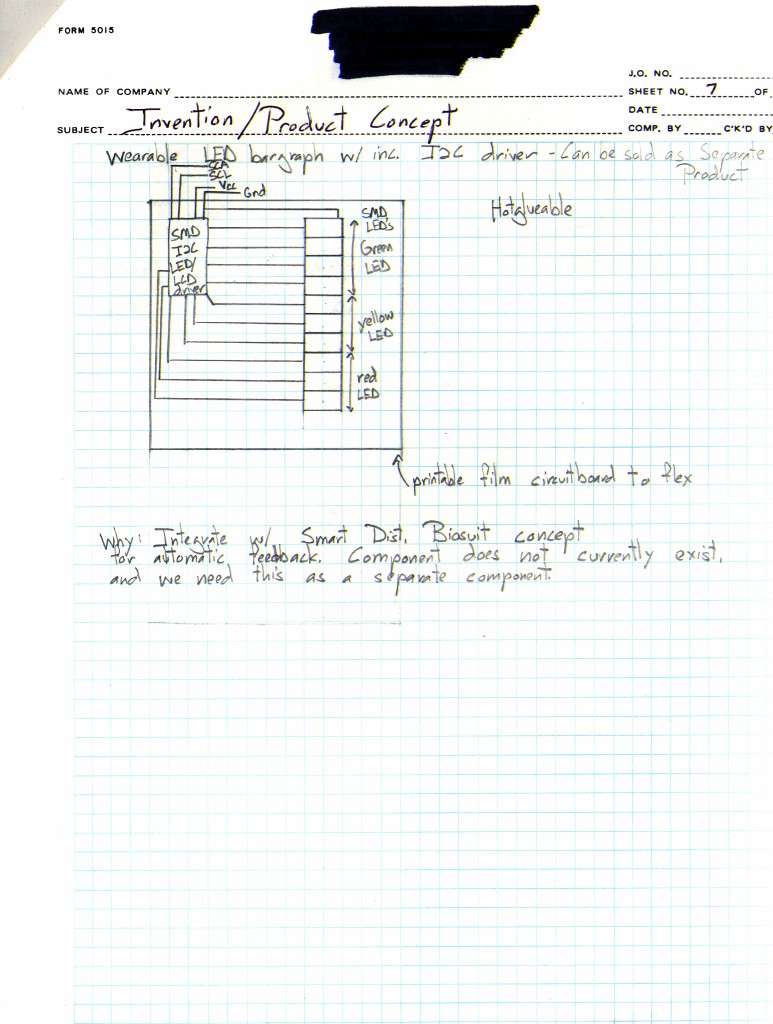 FORM 5015
J.O. NO.
NAME OF COMPANY
SHEET NO. 7 OF
DATE
SUBJECT Invention/Product Concept
COMP. BY C'K'D BY
Wearable LED bargraph w/ inc. I2C driver - Can be sold as Separate
Product
SCL
Vcc
Gnd
Hotglueable
SMD
I2C
LED/
LCD
driver
SMD
LED's
Green
LED
yellow
LED
red
LED
printable film circuitboard to flex
Why: Integrate w/ Smart Dist. Biosuit concept
for automatic feedback. Component does not currently exist,
and we need this as a separate component.